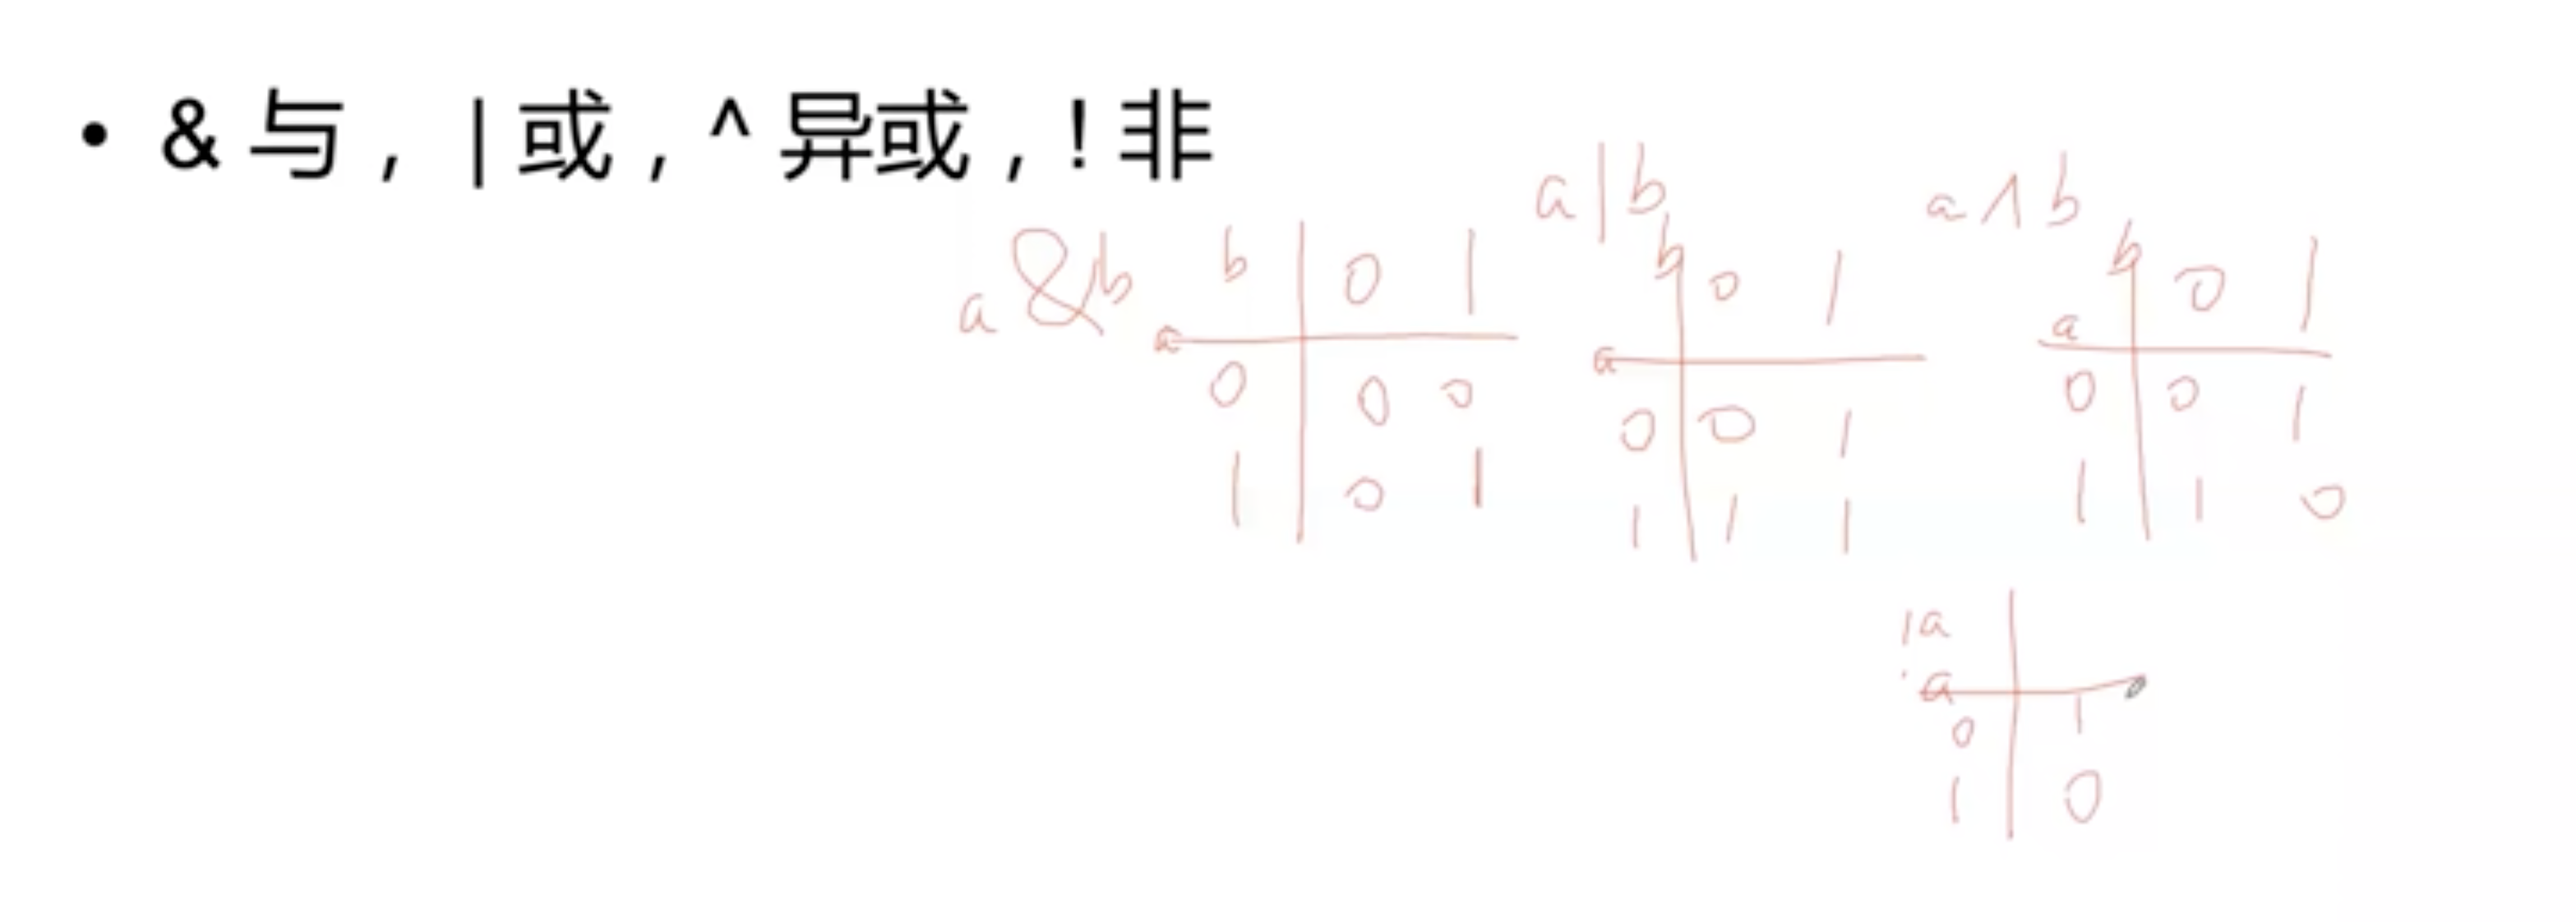 • & 与 , | 或 , ^ 异或 , ! 非
a & b
b 0 1
a
0 0 0
1 0 1
a | b
b 0 1
a
0 0 1
1 1 1
a ^ b
b 0 1
a
0 0 1
1 1 0
!a
a
0 1
1 0